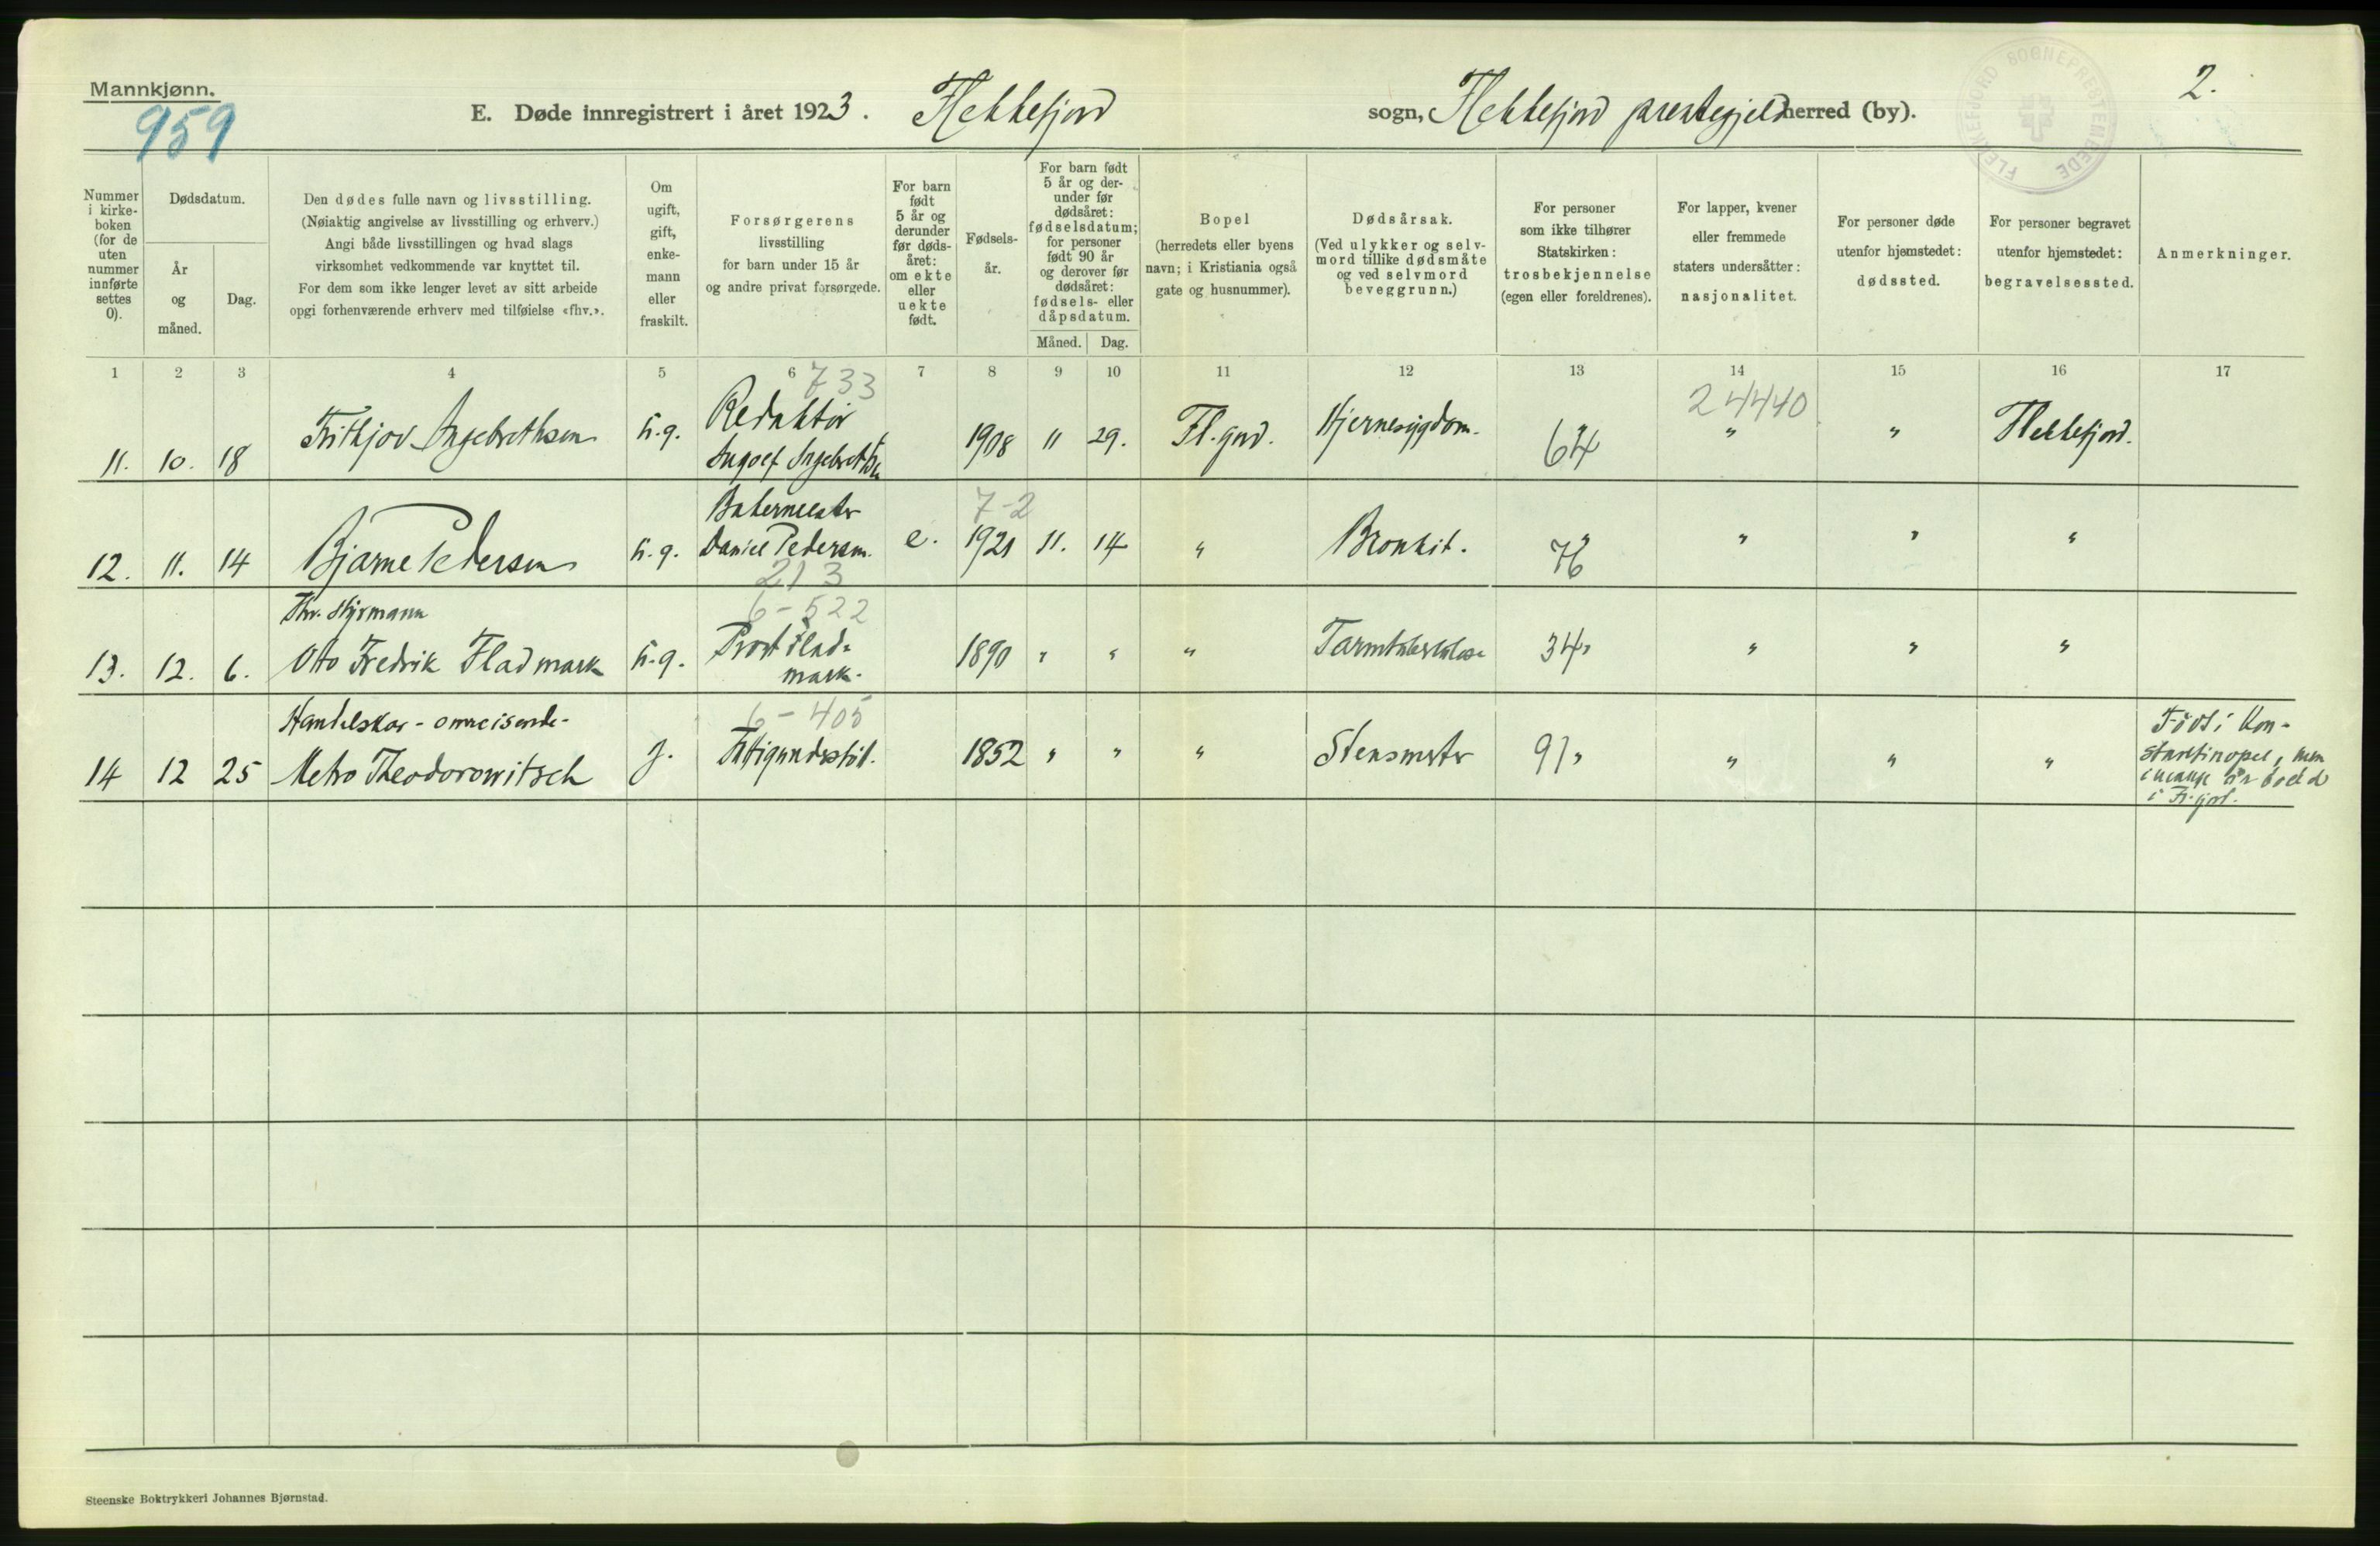 Mannkjønn.
959
E. Døde innregistrert i året 1923. Flekkefjord sogn, Flekkefjord prestegjeld herred (by).
2.
FLEKKEFJORD SOGNEPRESTEMBEDE
Nummer i kirke-boken (for de uten nummer innførte settes 0).
Dødsdatum.
År og måned.
Dag.
Den dødes fulle navn og livsstilling.
(Nøiaktig angivelse av livsstilling og erhverv.)
Angi både livsstillingen og hvad slags
virksomhet vedkommende var knyttet til.
For dem som ikke lenger levet av sitt arbeide
opgi forhenværende erhverv med tilføielse «fhv.».
Om ugift, gift, enke-mann eller fraskilt.
Forsørgerens
livsstilling
for barn under 15 år
og andre privat forsørgede.
For barn født 5 år og derunder før døds-året: om ekte eller uekte født.
Fødsels-år.
For barn født 5 år og der-under før dødsåret: fødselsdatum; for personer født 90 år og derover før dødsåret: fødsels- eller dåpsdatum.
Måned. Dag.
Bopel
(herredets eller byens
navn; i Kristiania også
gate og husnummer).
Dødsårsak.
(Ved ulykker og selv-
mord tillike dødsmåte
og ved selvmord
beveggrunn.)
For personer
som ikke tilhører
Statskirken:
trosbekjennelse
(egen eller foreldrenes).
For lapper, kvener
eller fremmede
staters undersåtter:
nasjonalitet.
For personer døde
utenfor hjemstedet:
dødssted.
For personer begravet
utenfor hjemstedet:
begravelsessted.
Anmerkninger.
1 2 3 4 5 6 7 8 9 10 11 12 13 14 15 16 17
733
24440
11. 10. 18 Frithjov Ingebrethsen u.g. Redaktør Ingolf Ingebrethsen 1908 11 29. Fl.fjord. Hjernesygdom. " 64 " " Flekkefjord.
7-2
12. 11. 14 Bjarne Pedersen u.g. Bakermester Daniel Pedersen. e. 1921 11. 14 " Bronkit. " 76 " " "
213
6-522
Fhv. Styrmann
13. 12. 6. Otto Fredrik Fladmark u.g. Prost Flad-mark. 1890 " " " Tarmtuberkulose 34 " " " "
6-405
Handelskar - omreisende-
14 12 25 Metro Theodorowitsch g. Fattigunderstøt. 1852 " " " Stensmerter 91 " " " "
Født i Kon-
stantinopel, men
i mange år boed
i Fl.fjord.
Steenske Boktrykkeri Johannes Bjørnstad.